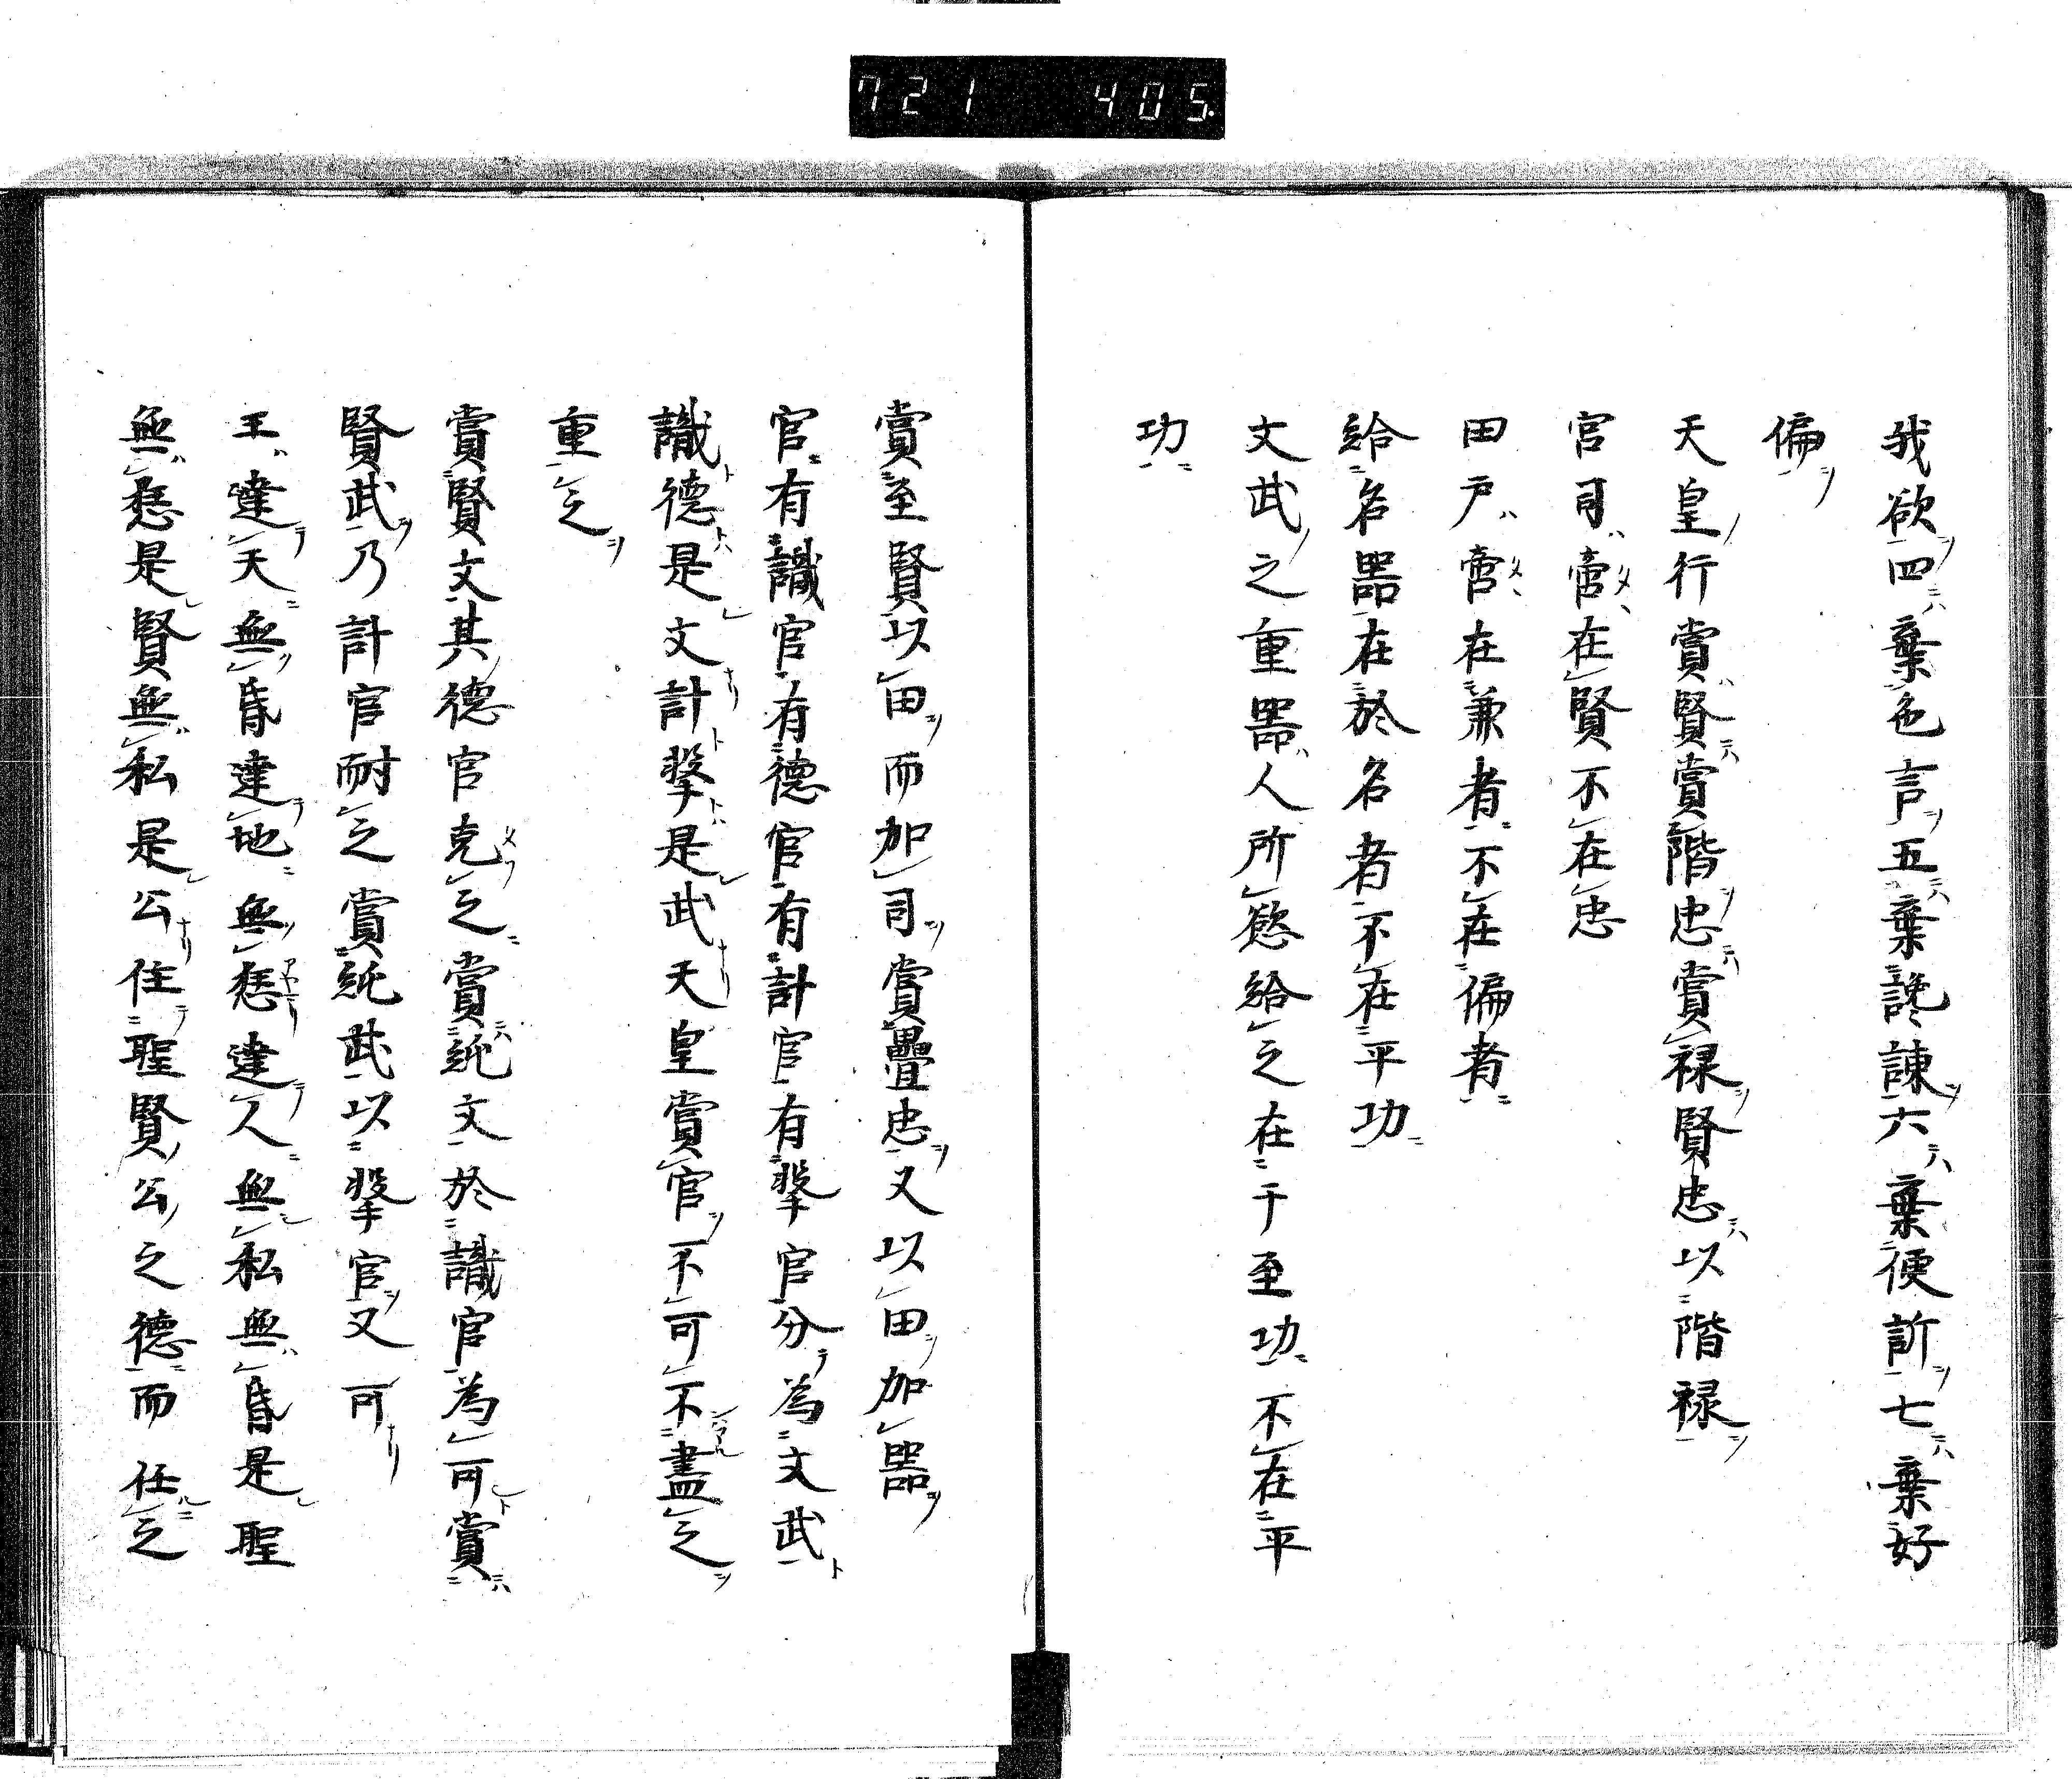 721 405.
我欲四棄色言五棄讒諫六棄便訢七棄好
偏
天皇行賞賢賞階忠賞禄賢忠以階禄
官司啻在賢不在忠
田戸啻在兼者不在偏者
給名器在於名者不在平功
文武之重器人所慾給之在于至功不在平
功
賞至賢以田而加司賞疊忠又以田加器
官有識官有德官有計官有擊官分為文武
識德是文計擊是武天皇賞官不可不盡之
重之
賞賢文其德官克之賞純文於識官為可賞
賢武乃計官耐之賞純武以擊官又可
王達天無昏達地無愆達人無私無昏是聖
無愆是賢無私是公住聖賢公之德而任之